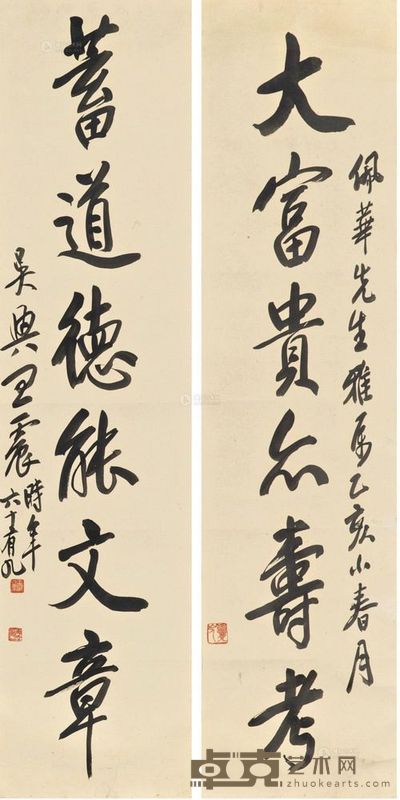 佩華先生雅屬乙亥小春月
大富貴亦壽考
蓄道德能文章
吳興王震時年
六十有九
卓克艺术网
zhuokearts.com